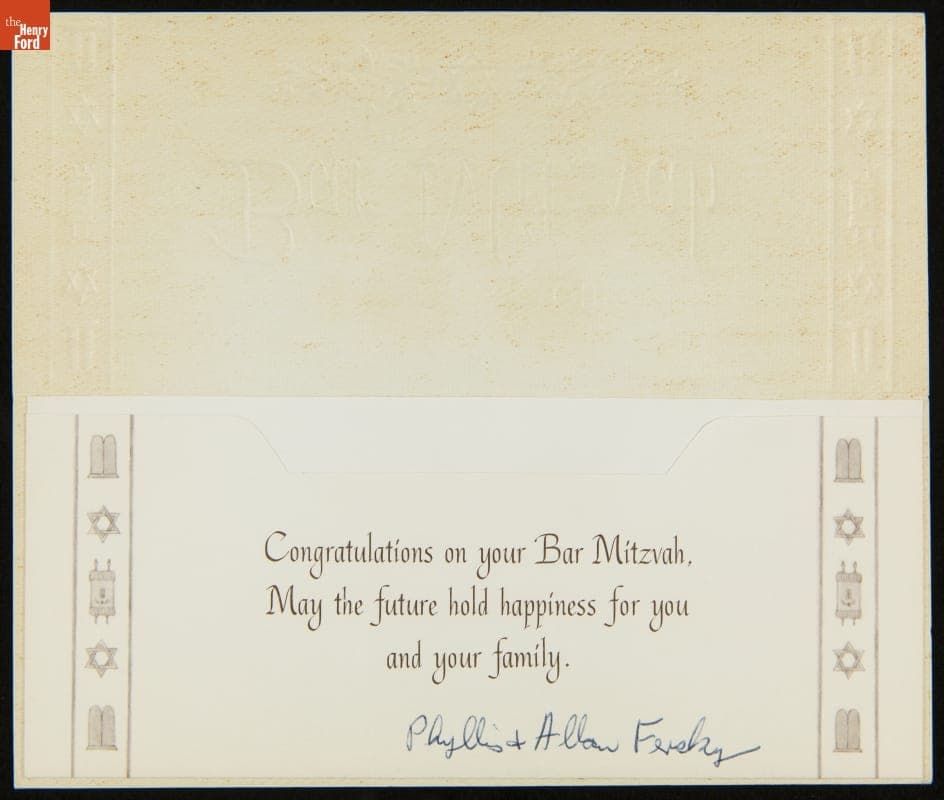 the
Henry
Ford
Congratulations on your Bar Mitzvah.
May the future hold happiness for you
and your family.
Phyllis + Allan Fersky